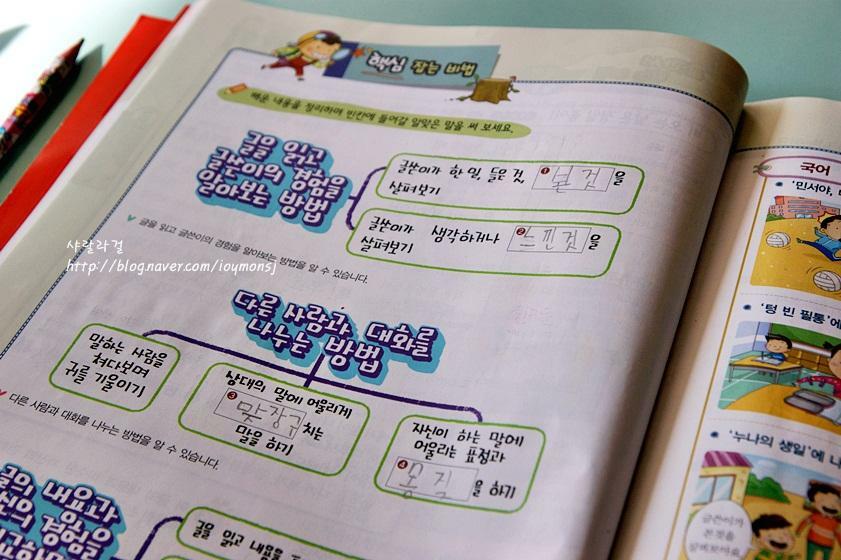 핵심 잡는 비법
배운 내용을 정리하며 빈칸에 들어갈 알맞은 말을 써 보세요.
글을 읽고
글쓴이의 경험을
알아보는 방법
글쓴이가 한 일, 들은 것, ❶ 본 것 을
살펴보기
글쓴이가 생각하거나 ❷ 느낀것 을
살펴보기
글을 읽고 글쓴이의 경험을 알아보는 방법을 알 수 있습니다.
샤랄라걸
http://blog.naver.com/ioymonsj
다른 사람과 대화를
나누는 방법
말하는 사람을
쳐다보며
귀를 기울이기
상대의 말에 어울리게
❸ 맞장구 치는
말을 하기
자신이 하는 말에
어울리는 표정과
❹ 몸짓 을 하기
다른 사람과 대화를 나누는 방법을 알 수 있습니다.
글의 내용과
경험을
글을 읽고 내용을
국어
'민서야,
'텅 빈 필통'에
'누나의 생일'에 나
글쓴이가
본것을
살펴보아요